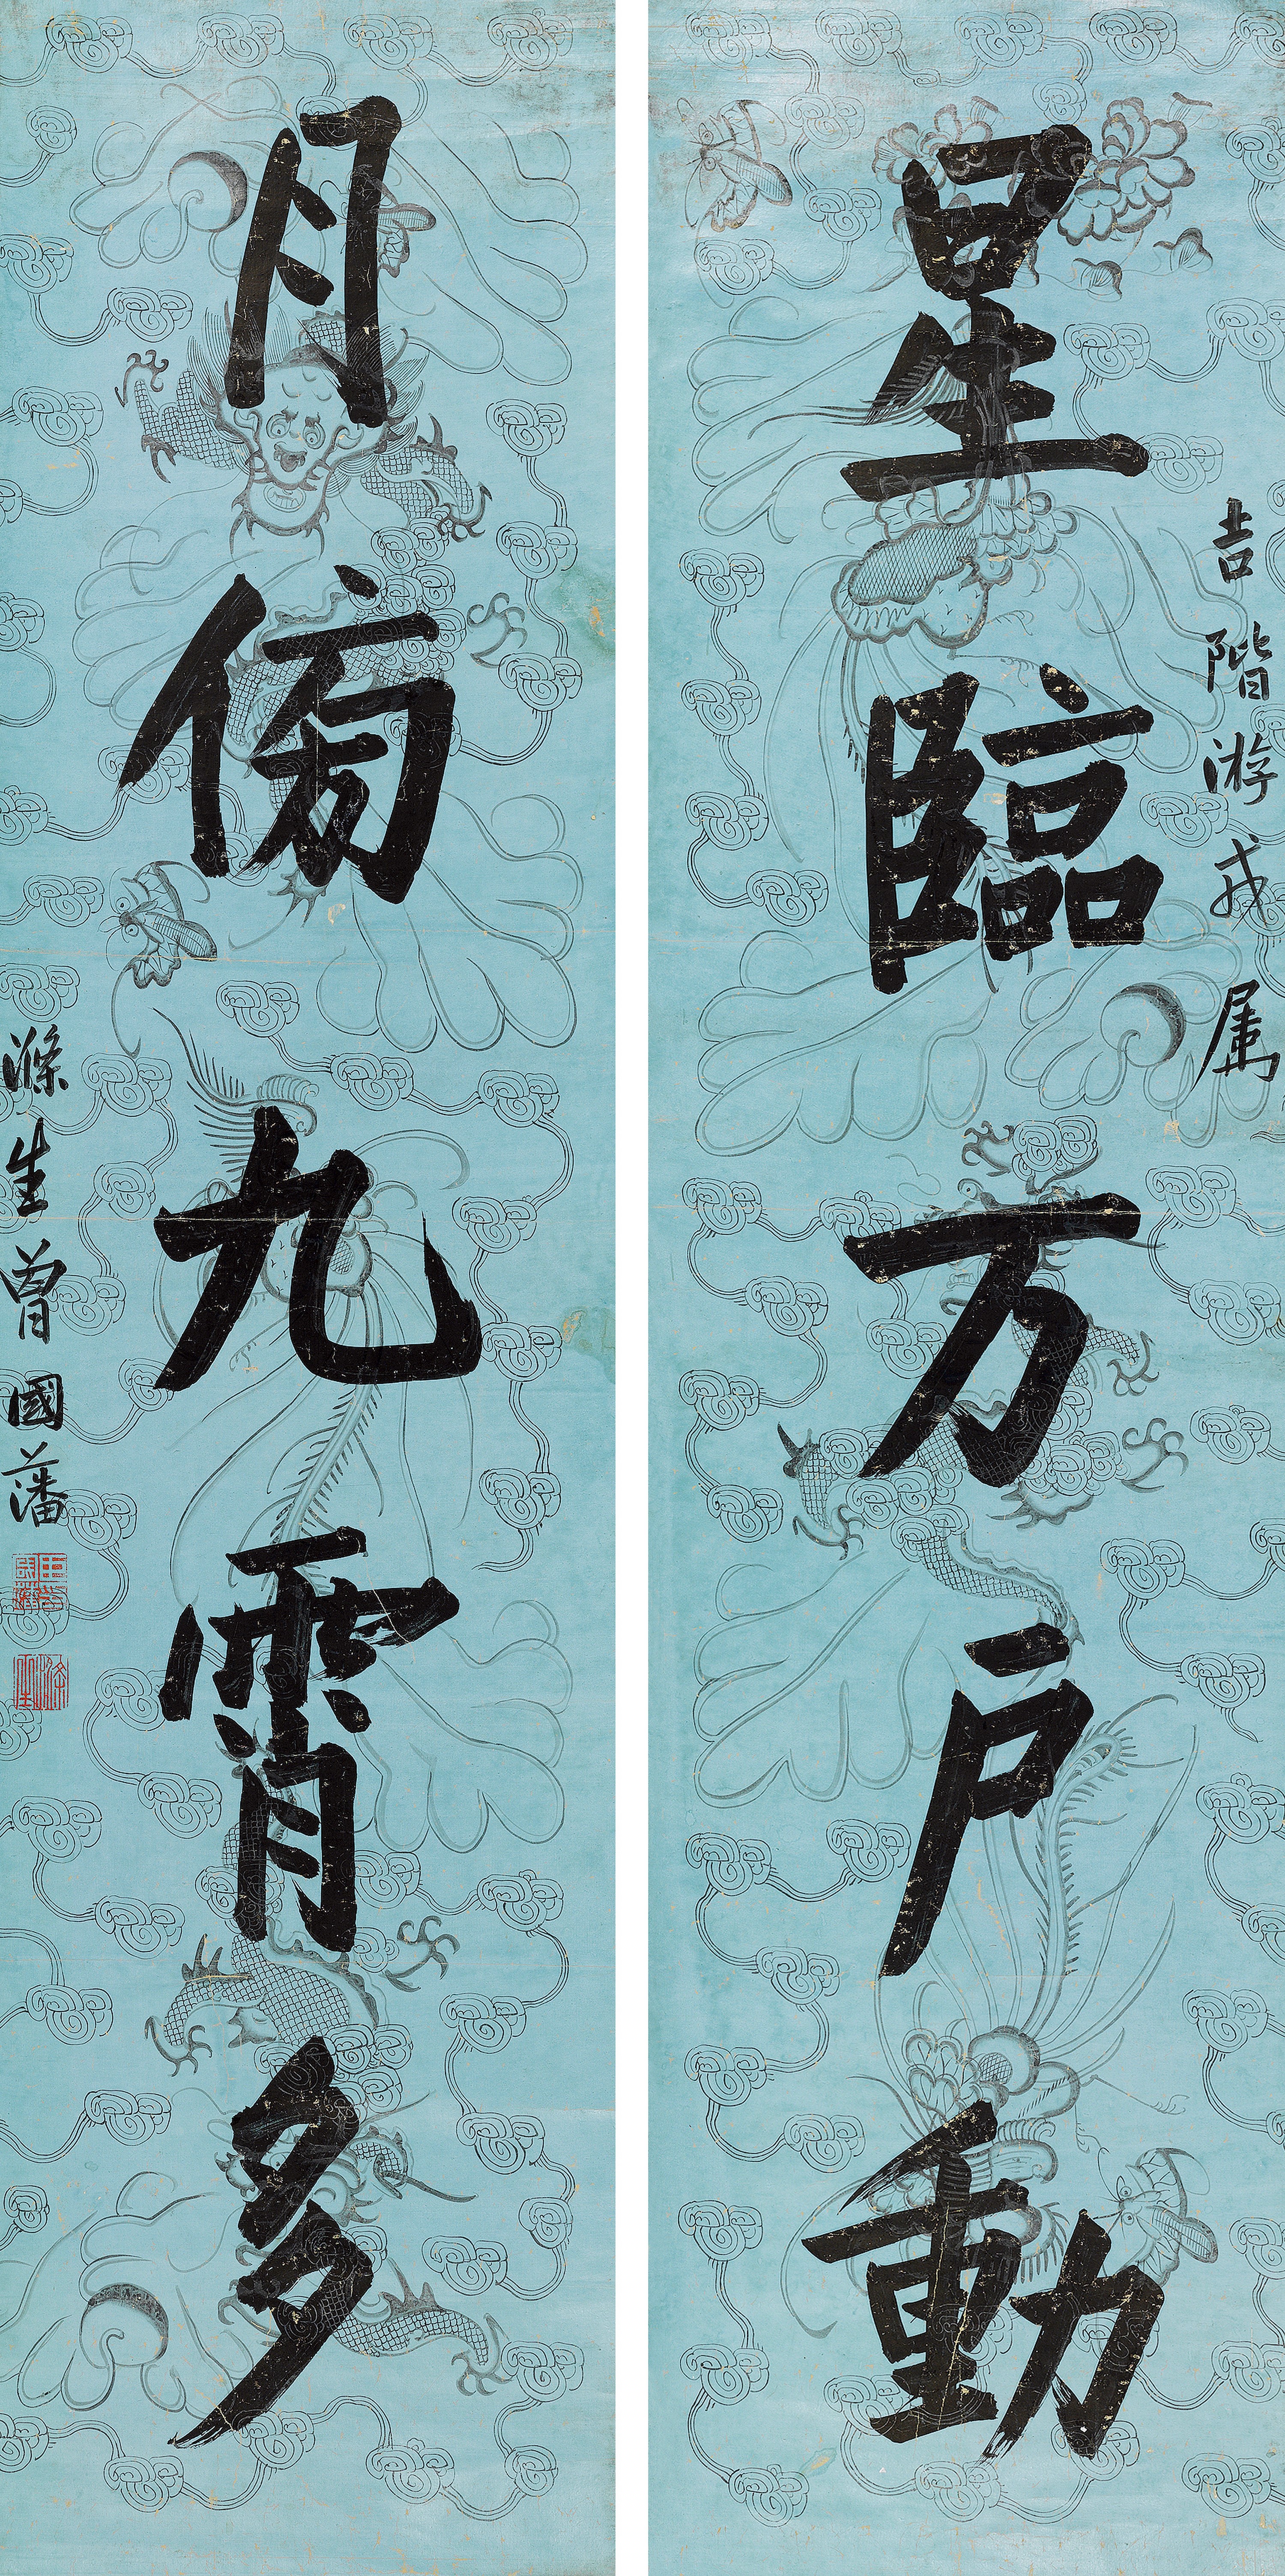 星臨万戶動
吉階游戎属
月傍九霄多
滌生曾國藩
滌生